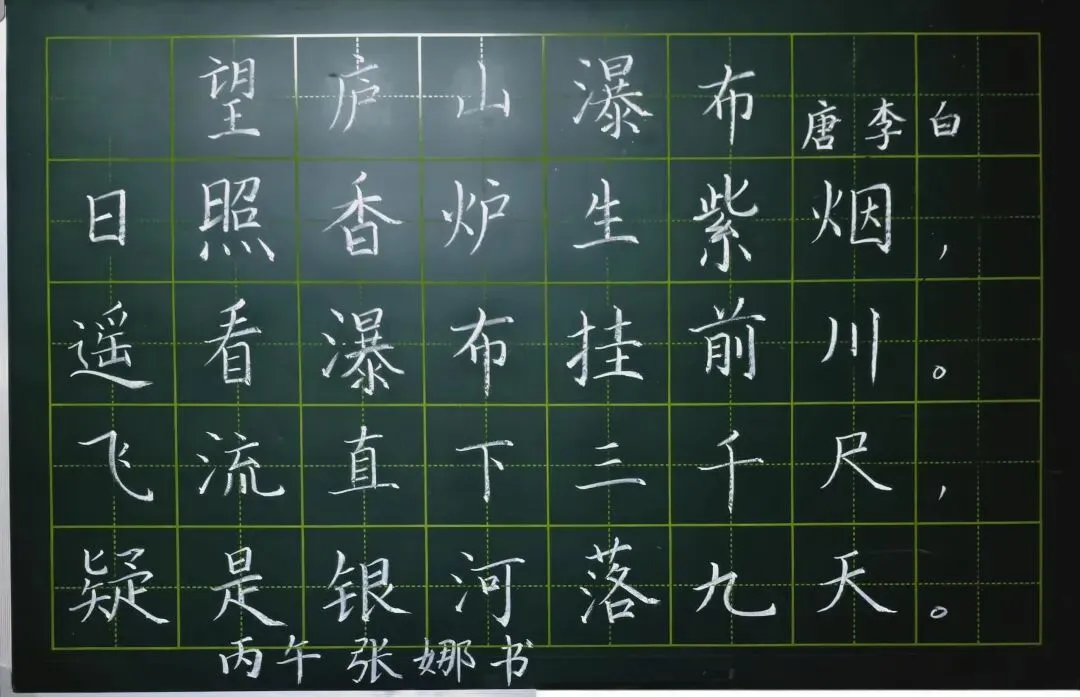 望庐山瀑布 唐 李白
日照香炉生紫烟，
遥看瀑布挂前川。
飞流直下三千尺，
疑是银河落九天。
丙午 张娜书